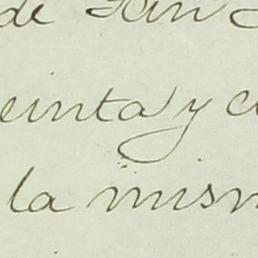 de San
einta y c
la mism